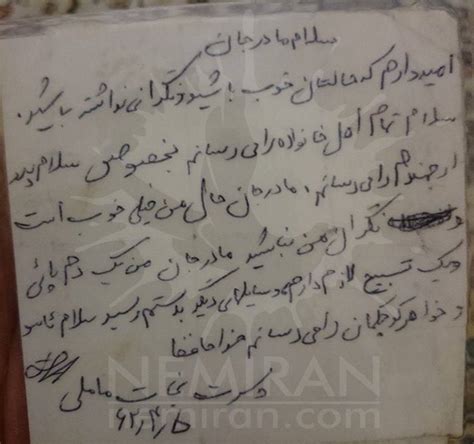 سلام مادر جان
امیدوارم که حالتان خوب باشید و نگرانی نداشته باشید.
سلام تمام اهل خانواده را می رسانم بخصوص سلام پدر
ارجمندم را می رسانم، مادر جان حال من خیلی خوب است
و نگران من نباشید مادر جان من یک دم پائی
و یک تسبیح لازم دارم و سایلهای دیگر بدستم رسید سلام
و خواهر کوچکمان را می رسانم خدا حافظ
نجات
۶۲/۴/۵
NEMIRAN
nemiran.com